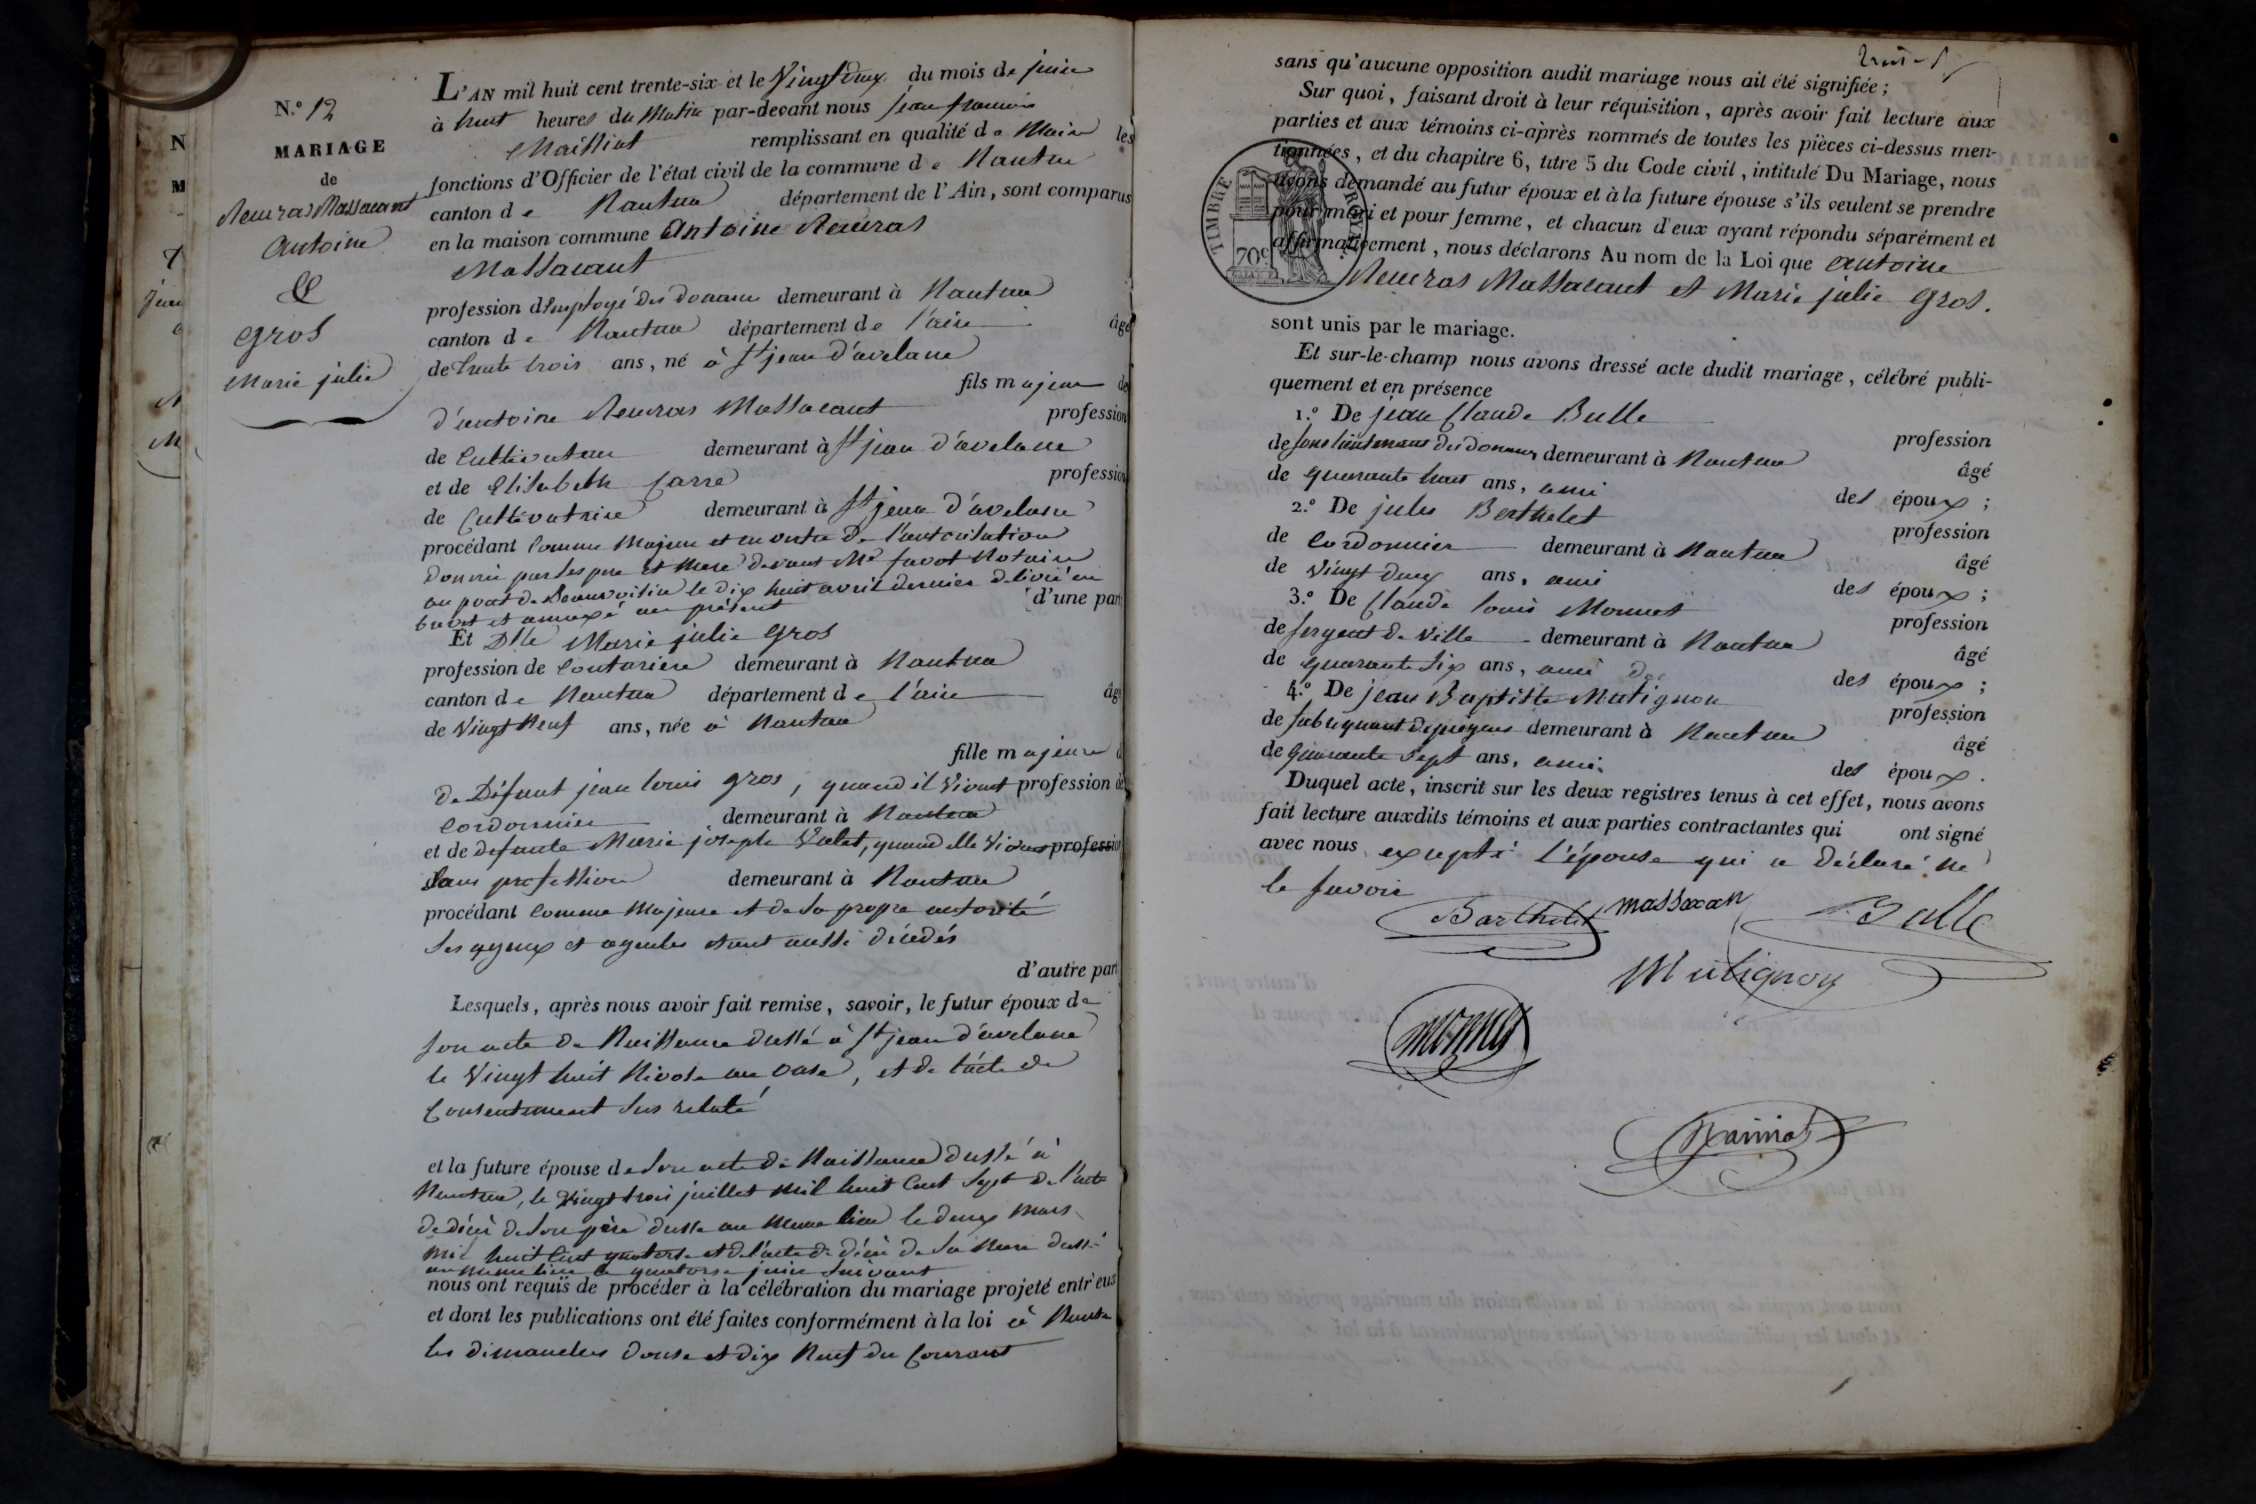 N.º 12
MARIAGE
de
Reucras Massacant
Antoine
&
Gros
Marie julie
L'AN mil huit cent trente-six et le Vingt deux du mois de juin
à huit heures du Matin par-devant nous jean francois
Maissiat remplissant en qualité de Maire les
fonctions d'Officier de l'état civil de la commune de Nantua
canton de Nantua département de l'Ain, sont comparus
en la maison commune Antoine Reucras
Massacant
profession d'Employé des douanes demeurant à Nantua
canton de Nantua département de l'ain âgé
de trente trois ans, né à St jean d'avelane
fils majeur de
d'antoine Reucras Massacant profession
de Cultivateur demeurant à St jean d'avelane
et de Elisabeth Carre profession
de Cultivatrice demeurant à St jean d'avelane
procédant comme Majeur et en vertu de l'autorisation
donnée par ses pere et mere devant Me favot Notaire
au pont de Beauvoisin le dix huit avril dernier délivré en
brevet et annexé au présent d'une part
Et Dlle Marie julie Gros
profession de Couturiere demeurant à Nantua
canton de Nantua département de l'ain âgé
de Vingt Neuf ans, née à Nantua
fille majeure d
de Défunt jean louis Gros, quand il Vivait profession de
Cordonnier demeurant à Nantua
et de defunte Marie josephe Valet, quand elle Vivait profession
sans profession demeurant à Nantua
procédant comme Majeure et de sa propre autorité
ses ayeux et ayeules etant aussi décédés
d'autre part
Lesquels, après nous avoir fait remise, savoir, le futur époux de
son acte de Naissance dressé à St jean d'avelane
le Vingt huit Nivose an onze, et de l'acte de
Consentement sus relaté
et la future épouse de son acte de Naissance dressé à
Nantua, le Vingt trois juillet mil huit Cent Sept de l'acte
de décès de son père dressé au meme lieu le deux mars
mil huit Cent quatorze et de l'acte de décès de sa mere dressé
au meme lieu le quatorze juin suivant
nous ont requis de procéder à la célébration du mariage projeté entr'eux
et dont les publications ont été faites conformément à la loi à Nantua
les dimanches douze et dix Neuf du Courant
sans qu'aucune opposition audit mariage nous ait été signifiée;
Sur quoi, faisant droit à leur réquisition, après avoir fait lecture aux
parties et aux témoins ci-après nommés de toutes les pièces ci-dessus men-
tionnées, et du chapitre 6, titre 5 du Code civil, intitulé Du Mariage, nous
avons demandé au futur époux et à la future épouse s'ils veulent se prendre
pour mari et pour femme, et chacun d'eux ayant répondu séparément et
affirmativement, nous déclarons Au nom de la Loi que Antoine
Reucras Massacant et Marie julie Gros.
TIMBRE ROYAL
70c
sont unis par le mariage.
Et sur-le-champ nous avons dressé acte dudit mariage, célébré publi-
quement et en présence
1.º De jean Claude Bulle profession
de sous lieutenant des douanes demeurant à Nantua âgé
de quarante huit ans, ami des époux;
2.º De jules Berthelet profession
de Cordonnier demeurant à Nantua âgé
de Vingt deux ans, ami des époux;
3.º De Claude louis Monnet profession
de sergent de Ville demeurant à Nantua âgé
de quarante six ans, ami des époux;
4.º De jean Baptiste Matignon profession
de demeurant à Nantua âgé
de Quarante Sept ans, ami des époux.
Duquel acte, inscrit sur les deux registres tenus à cet effet, nous avons
fait lecture auxdits témoins et aux parties contractantes qui ont signé
avec nous excepté l'épouse qui a déclaré ne
le savoir
Barthelet Massacan Bulle
Matignon
monnet